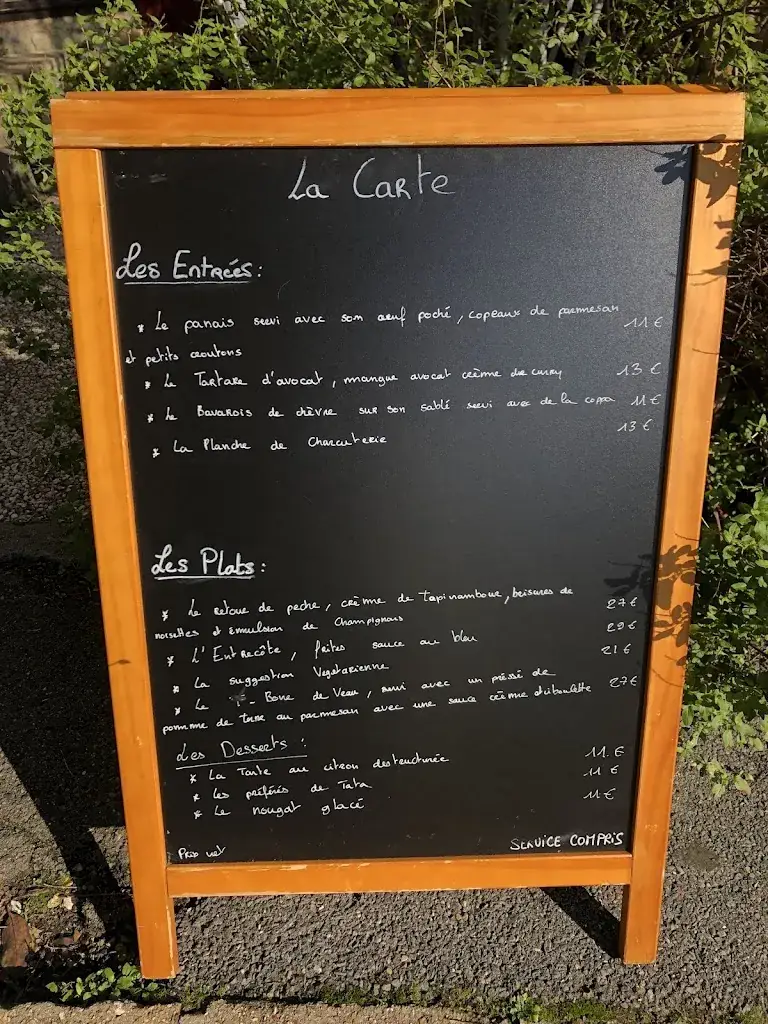 La Carte
Les Entrées :
* Le panais servi avec son œuf poché, copeaux de parmesan 11 €
et petits croutons
* Le Tartare d'avocat, mangue avocat crème de curry 13 €
* Le Bavarois de chèvre sur son sablé servi avec de la coppa 11 €
* La Planche de Charcuterie 13 €
Les Plats :
* Le retour de peche, crème de Tapinambour, brisures de 27 €
noisettes et émulsion de Champignons
* L'Entrecôte, frites sauce au bleu 29 €
* La suggestion Vegetarienne 21 €
* Le T-Bone de Veau, servi avec un pressé de 27 €
pomme de terre au parmesan avec une sauce crème ciboulette
Les Desserts :
* La Tarte au citron destructurée 11 €
* Les préférés de Tata 11 €
* Le nougat glacé 11 €
Prix net SERVICE COMPRIS